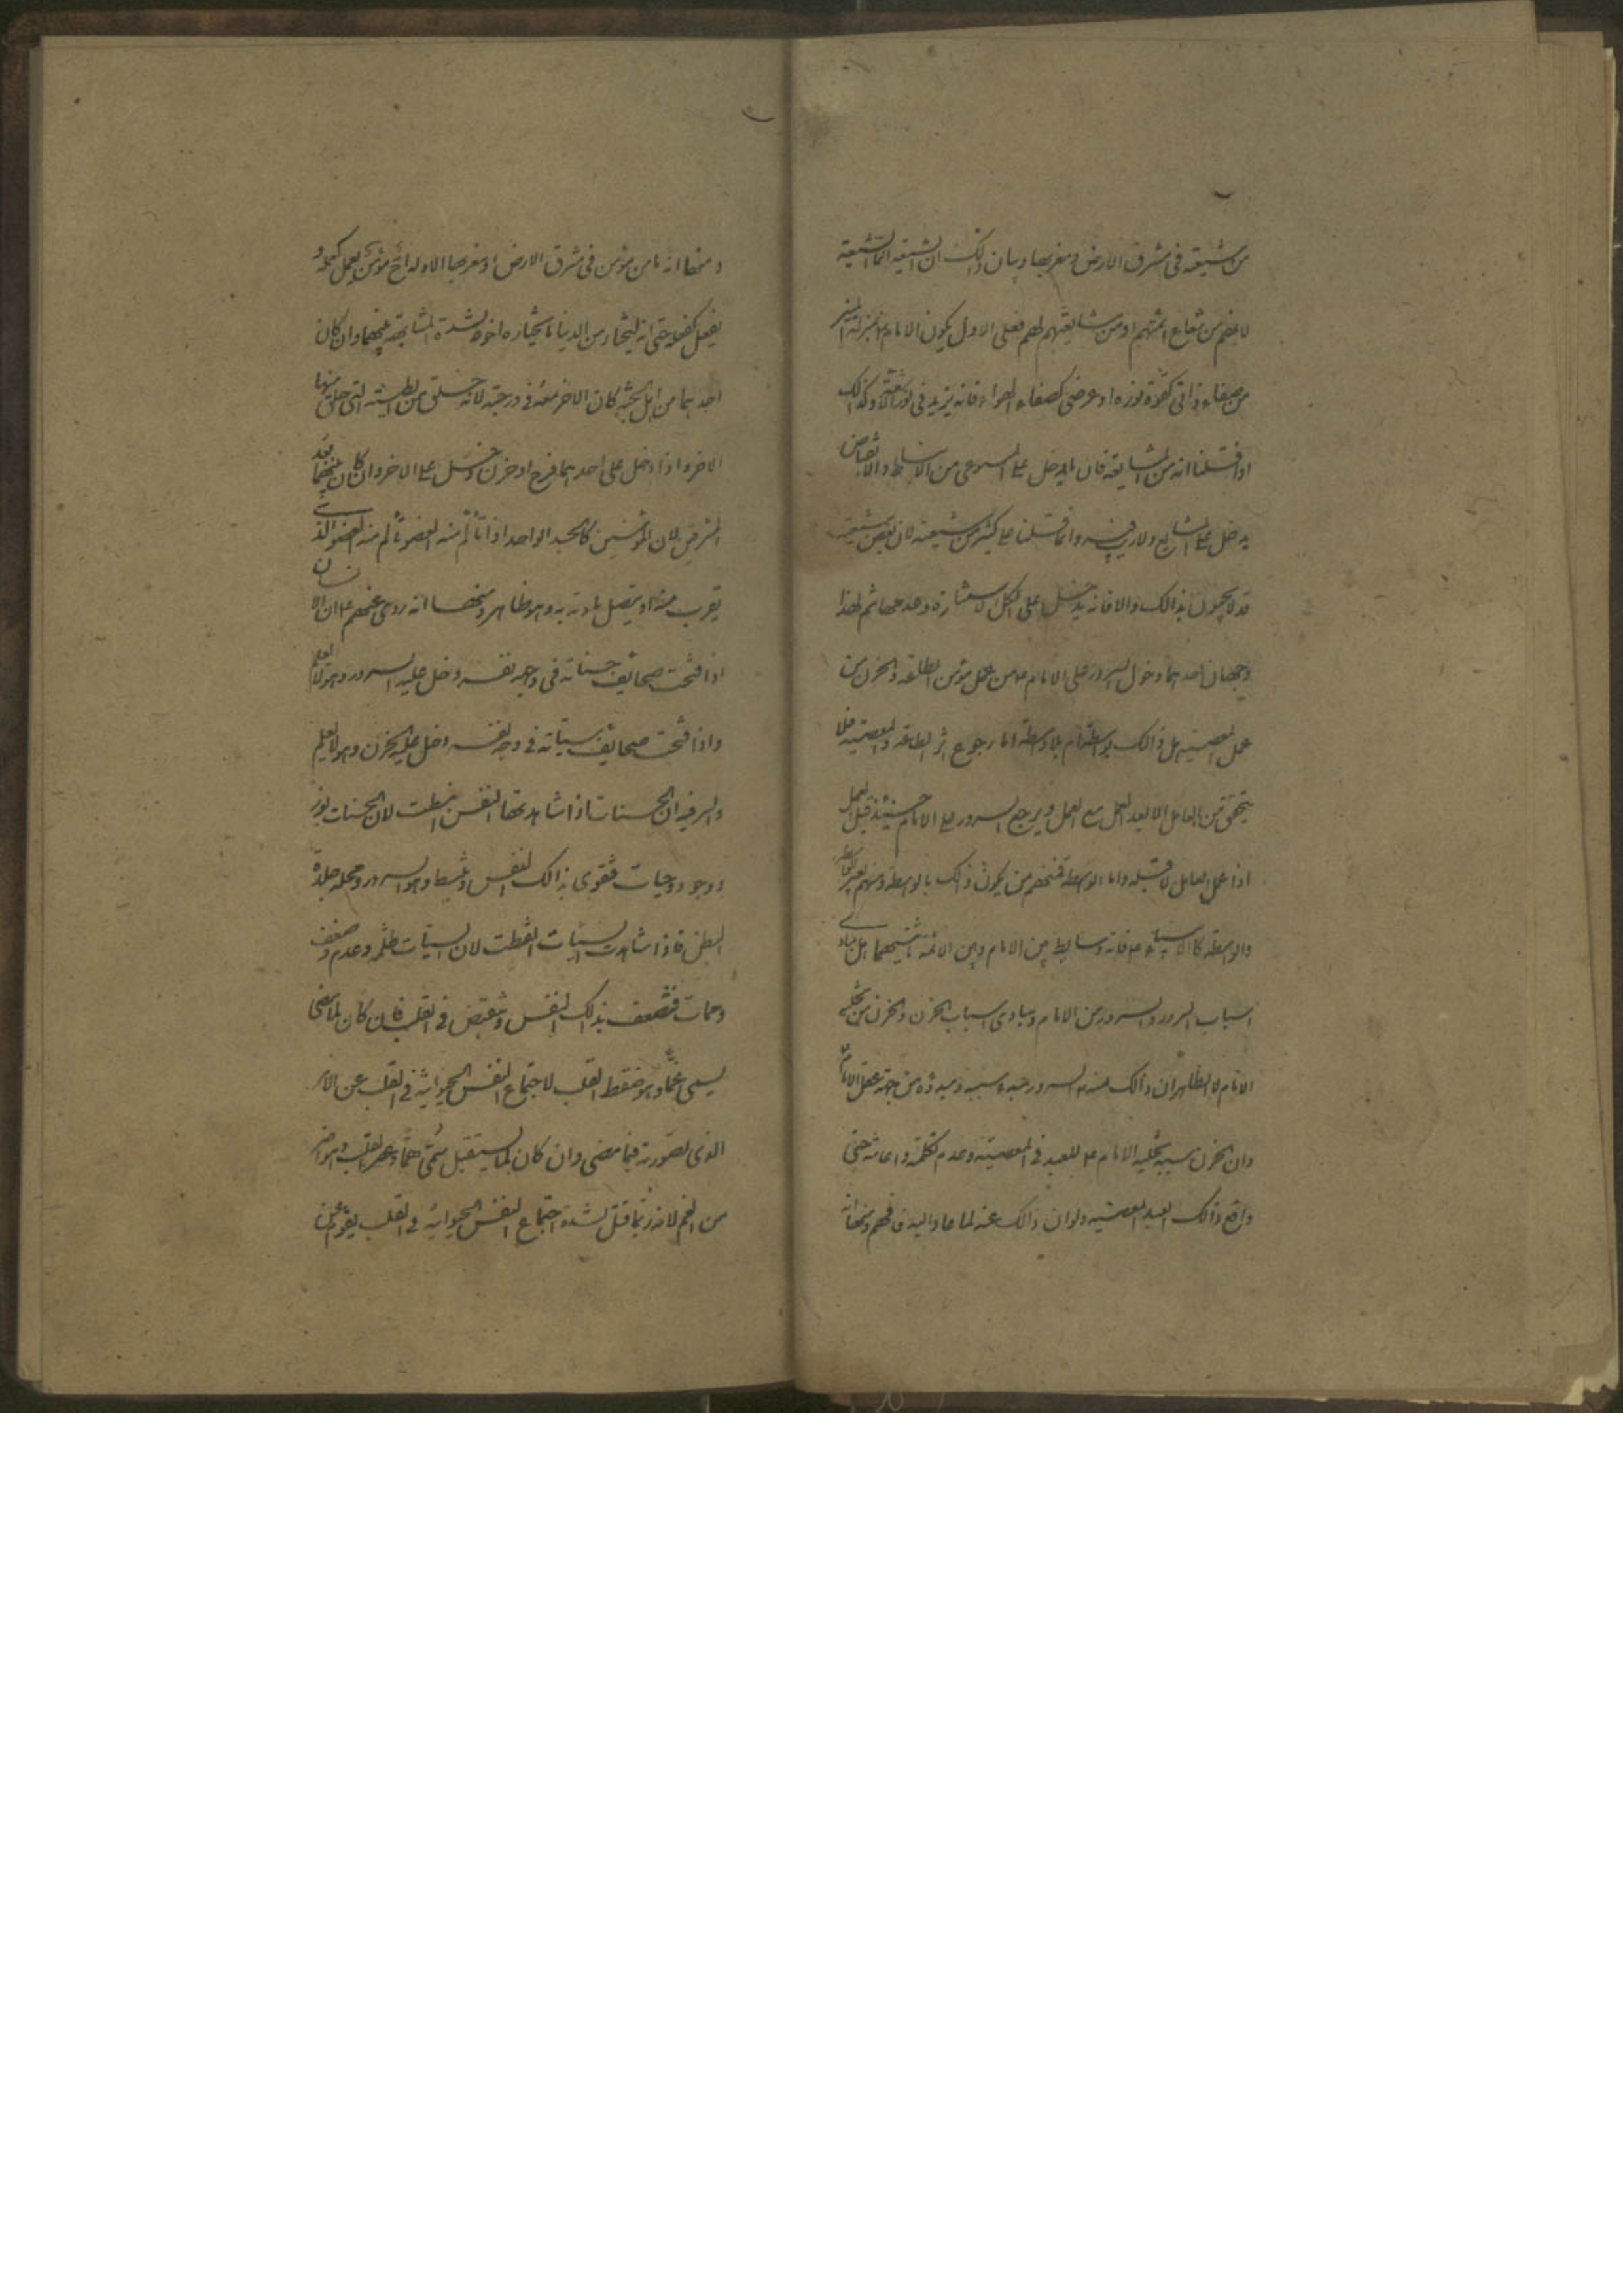 من شيعته فى مشرق الارض ومغربها وبيان ذلك ان الشيعة انما الشيعة
لانهم من شعاع ائمتهم او من مشايعتهم لهم فعلى الاول يكون الامام ع بمنزلة المنير
من صفاء ذاتى كقوة نوره او عرضى كصفاء الهواء فانه يزيد فى نور الاشعة وكذلك
اذا قلنا انه من المشايعة فان ما يدخل على المتبوع من الانبساط والانقباض
يدخل على المشايع ولا ريب فيه وانما قلنا على كثير من شيعته لان بعض شيعته
قد لا يحصل بذالك والا فانه يدخل على الكل لاستنارة وحد عما ثم لهذا
وجهان احدهما دخول السرور على الامام ع من عمل مؤمن الطاعة والحزن من
عمل المعصية هل ذالك بواسطة ام بلا واسطة اما رجوع اثر الطاعة والمعصية فلا
يتحقق من العامل الا بعد العمل مع العمل ويرجع السرور على الامام حينئذ قبل العمل
اذا عمل العامل لا قبله واما الواسطة فمنهم من يكون ذلك بالواسطة ومنهم بغير الواسطة
والواسطة كالانبياء ع فانه وسايط بين الامام وبين الائمة شيعتهما هل مبادى
اسباب السرور والسرور من الامام ومبادى اسباب الحزن والحزن من تخلية
الامام لا الظاهر ان ذالك منه ع السرور حيده سببه ومبدؤه من جهة عقل الامام ع
وان الحزن سببه تخلية الامام ع للعبد فى المعصية وعدم تكلمة واعانته حتى
واقع ذالك العبد المعصية ولو ان ذالك عنه لما عاد اليه فافهم ومنها انه
ومنها انه ما من مؤمن فى مشرق الارض او مغربها الا وله اخ مؤمن يعمل كعمله و
يفعل كفعله حتى انه ليختار من الدنيا ما يختاره اخوه لشدة المشابهة بينهما وان كان
احدهما من اهل الجنة كان الاخر معه فى درجته لانه خلق من الطينة التى خلق منها
الاخر واذا دخل على احدهما فرح او حزن دخل على الاخر وان كان بينهما بعد
المشرقين لان المؤمنين كالجسد الواحد اذا تألم منه العضو تألم منه العضو الذى
يقرب منه او يتصل مادته به وهو ظاهر ومنها انه روى عنهم ع ان الانسان
اذا فتحت صحائف حسناته فى وجه نفسه دخل عليه السرور وهو لا يعلم
واذا فتحت صحائف سيئاته فى وجه نفسه دخل عليه الحزن وهو لا يعلم
والسر فيه ان الحسنات اذا شاهدتها النفس انبسطت لان الحسنات نور
ووجود وحيات فتقوى بذالك النفس وتنبسط وهو السرور ومحله جلدة
البطن فاذا شاهدت السيئات انقبضت لان السيئات ظلمة وعدم وضعف
وممات فتضعف بذلك النفس وتنقبض فى القلب فان كان لما مضى
يسمى غما وهو ضغط القلب لاجتماع النفس الحيوانية فى القلب عن الامر
الذى تصورته فيما مضى وان كان لما يستقبل سمى هما وعصر القلب وهو اضر
من الغم لانه ربما قتل لشدة اجتماع النفس الحيوانية فى القلب بقوة عن